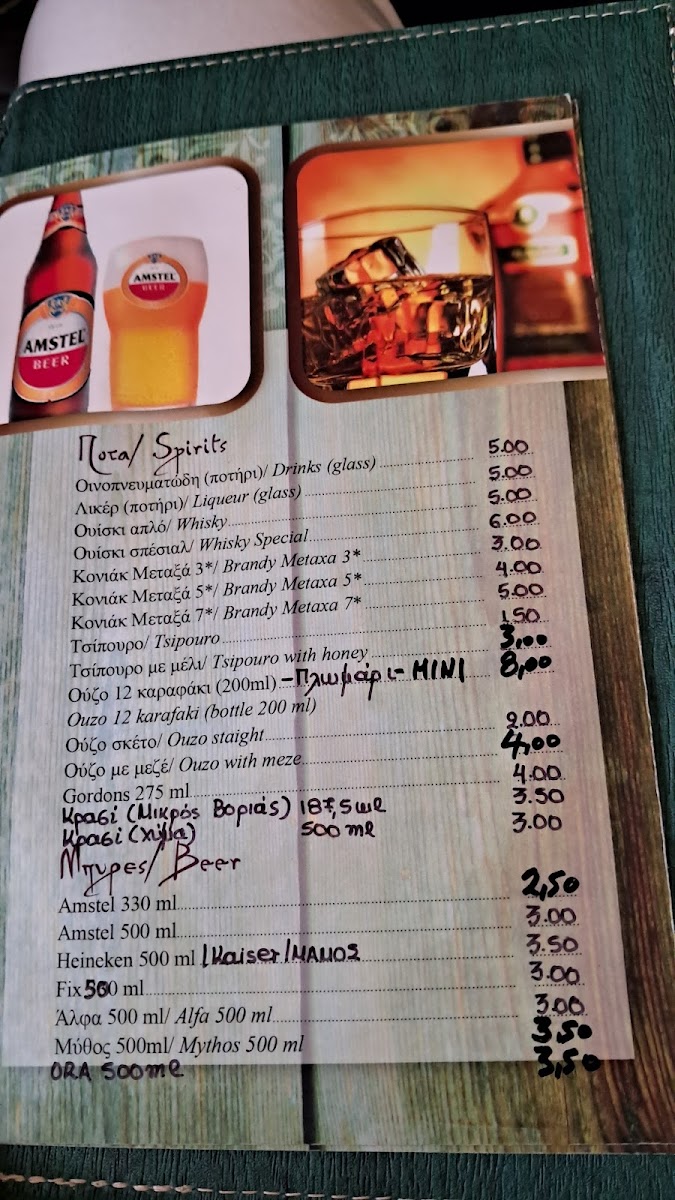 AMSTEL
BEER
AMSTEL
BEER
Ποτα/ Spirits
Οινοπνευματώδη (ποτήρι)/ Drinks (glass) 5.00
Λικέρ (ποτήρι)/ Liqueur (glass) 5.00
Ουίσκι απλό/ Whisky 5.00
Ουίσκι σπέσιαλ/ Whisky Special 6.00
Κονιάκ Μεταξά 3*/ Brandy Metaxa 3* 3.00
Κονιάκ Μεταξά 5*/ Brandy Metaxa 5* 4.00
Κονιάκ Μεταξά 7*/ Brandy Metaxa 7* 5.00
Τσίπουρο/ Tsipouro 1.50
Τσίπουρο με μέλι/ Tsipouro with honey 3,00
Ούζο 12 καραφάκι (200ml) -Πλωμάρι- MINI 8,00
Ouzo 12 karafaki (bottle 200 ml)
Ούζο σκέτο/ Ouzo staight 2.00
Ούζο με μεζέ/ Ouzo with meze 4,00
Gordons 275 ml 4.00
Κρασί (Μικρός Βοριάς) 187,5 ml 3.50
Κρασί (χύμα) 500 ml 3.00
Μπυρες/ Beer
Amstel 330 ml 2,50
Amstel 500 ml 3.00
Heineken 500 ml /Kaiser/ΜΑΜΟΣ 3.50
Fix 500 ml 3.00
Άλφα 500 ml/ Alfa 500 ml 3.00
Μύθος 500ml/ Mythos 500 ml 3,50
ORA 500 ml 3,50